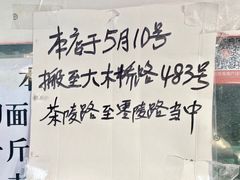 本店于5月10号
搬至大木桥路483号
茶陵路至零陵路当中
本
面
斤